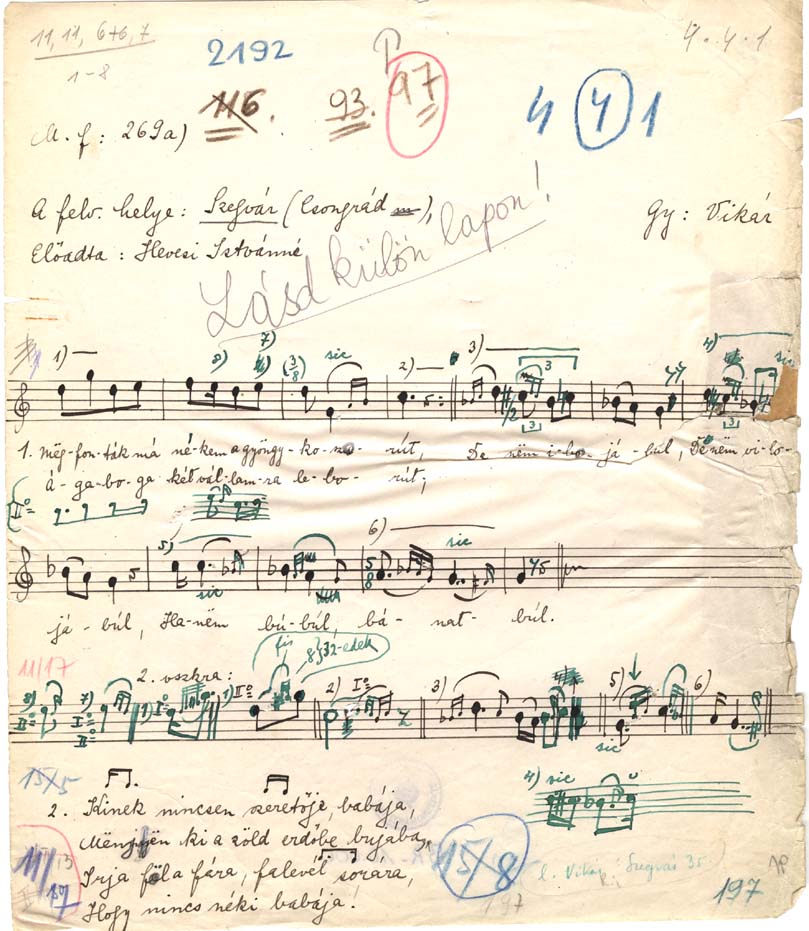 11, 11, 6+6, 7
1-8
2192
4.4.1
116.
93.
97
4 4 1
M. f: 269a)
A felv. helye: Szegvár (Csongrád m),
Gy: Vikár
Előadta: Hevesi Istvánné
Lásd külön lapon!
1) 8) 7) 3/8 sic 2) 3) 3 4)
1. Mëg-fon-ták má né-kem a gyöngy-ko-szo-rút, De nëm i-bo-já-búl, De nëm vi-lo-
á-ga-bo-ga két vál-lam-ra le-bo-rút;
II°
5) sic 6) sic 5/8
já-búl, Ha-nëm bú-búl, bá-nat-búl.
11/17
2. vszkra:
fis
8} 32-edek
8) 7) 1) 2) I° 3) 5) sic 6)
4) sic
15/5
2. Kinek nincsen szeretője, babája,
Mënjën ki a zöld erdőbe bujába,
Irja föl a fára, falevél sorára,
Hogy nincs néki babája!
15/8
l. Vikár: Szegvár 35
197
197